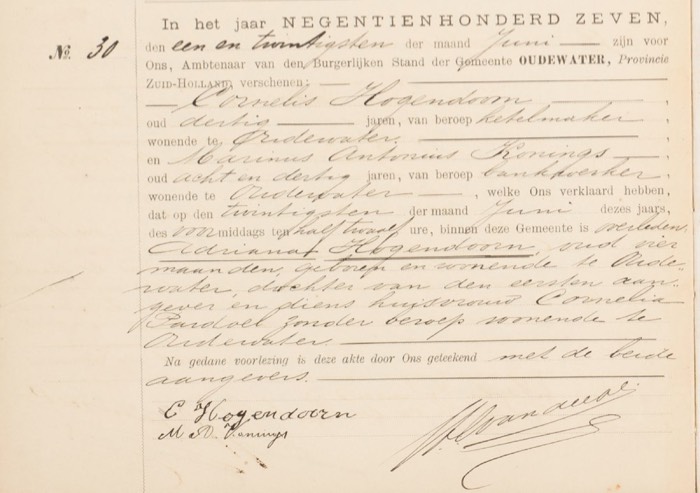 In het jaar NEGENTIENHONDERD ZEVEN,
No. 30
den een en twintigsten der maand Juni zijn voor
Ons, Ambtenaar van den Burgerlijken Stand der Gemeente OUDEWATER, Provincie
ZUID-HOLLAND, verschenen:
Cornelis Hogendoorn,
oud dertig jaren, van beroep ketelmaker,
wonende te Oudewater.
en Marinus Antonius Konings,
oud acht en dertig jaren, van beroep bankwerker
wonende te Oudewater, welke Ons verklaard hebben,
dat op den twintigsten der maand Juni dezes jaars,
des voormiddags ten half twaalf ure, binnen deze Gemeente is overleden
Adriana Hogendoorn, oud vier
maanden, geboren en wonende te Oude-
water, dochter van den eersten aan-
gever en diens huisvrouw Cornelia
Pardoel zonder beroep wonende te
Oudewater.
Na gedane voorlezing is deze akte door Ons geteekend met de beide
aangevers.
C Hogendoorn
M A Konings